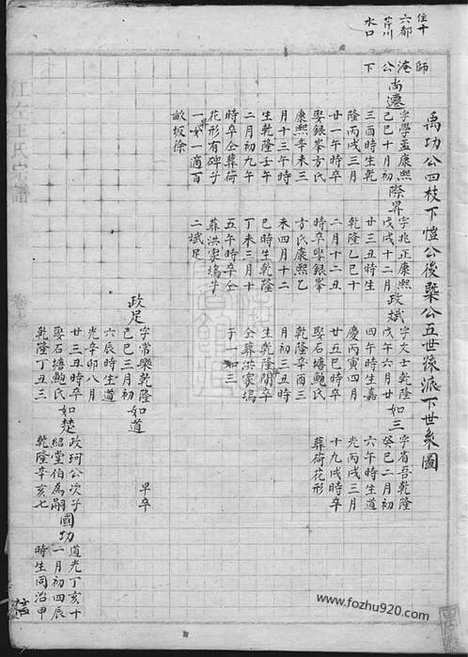 住十
六都
芹川
水口
禹功公四枝下愷公後槩公五世孫派下世系圖
師
淹
公
下
尚遷
字學孟康熙
己巳十月初
三酉時生乾
隆丙戌三月
廿一午時卒
娶銀峯方氏
康熙辛未三
月十三午時
生乾隆壬午
二月初九申
時卒仝葬荷
花形有碑子
一女一適百
畝坂徐
際昇
字兆正康熙
戊戌十二月
廿三丑時生
乾隆乙巳十
二月十二丑
時卒娶銀峯
方氏康熙乙
未四月十二
巳時生乾隆
丁未三月十
五午時卒仝
葬洪家塢子
二斌足
政斌
字文士乾隆
戊午六月廿
四午時生嘉
慶丙寅四月
廿五巳時卒
娶石塘鮑氏
乾隆辛酉三
月初三丑時
生乾隆閏卒
仝葬洪家塢
子 如三
如三
字省吾乾隆
癸巳二月初
六午時生道
光丙戌三月
十九戌時卒
葬荷花形
政足
字常樂乾隆
己巳三月初
六辰時生道
光辛卯八月
廿三丑時卒
娶石塘鮑氏
乾隆丁丑三
如道
早卒
如楚
政珂公次子
紹堂伯為嗣
乾隆辛亥七
國功
道光丁亥十
一月初四辰
時生同治甲
www.fozhu920.com